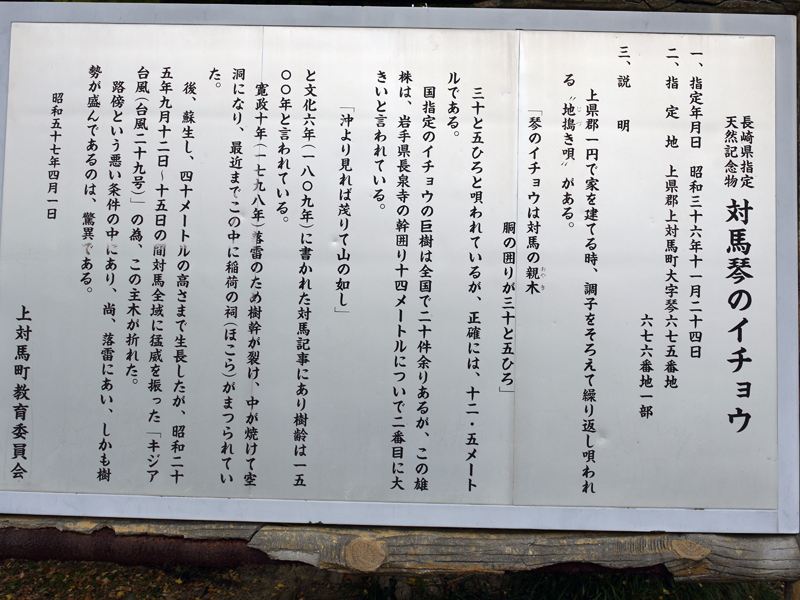 長崎県指定
天然記念物
対馬琴のイチョウ
一、指定年月日　昭和三十六年十一月二十四日
二、指定地　上県郡上対馬町大字琴六七五番地
六七六番地一部
三、説明
上県郡一円で家を建てる時、調子をそろえて繰り返し唄われ
る〝地搗き唄〟がある。
「琴のイチョウは対馬の親木
胴の囲りが三十と五ひろ」
三十と五ひろと唄われているが、正確には、十二・五メート
ルである。
国指定のイチョウの巨樹は全国で二十件余りあるが、この雄
株は、岩手県長泉寺の幹囲り十四メートルについで二番目に大
きいと言われている。
「沖より見れば茂りて山の如し」
と文化六年(一八〇九年)に書かれた対馬記事にあり樹齢は一五
〇〇年と言われている。
寛政十年(一七九八年)落雷のため樹幹が裂け、中が焼けて空
洞になり、最近までこの中に稲荷の祠(ほこら)がまつられてい
た。
後、蘇生し、四十メートルの高さまで生長したが、昭和二十
五年九月十二日〜十五日の間対馬全域に猛威を振った「キジア
台風(台風二十九号)」の為、この主木が折れた。
路傍という悪い条件の中にあり、尚、落雷にあい、しかも樹
勢が盛んであるのは、驚異である。
昭和五十七年四月一日
上対馬町教育委員会